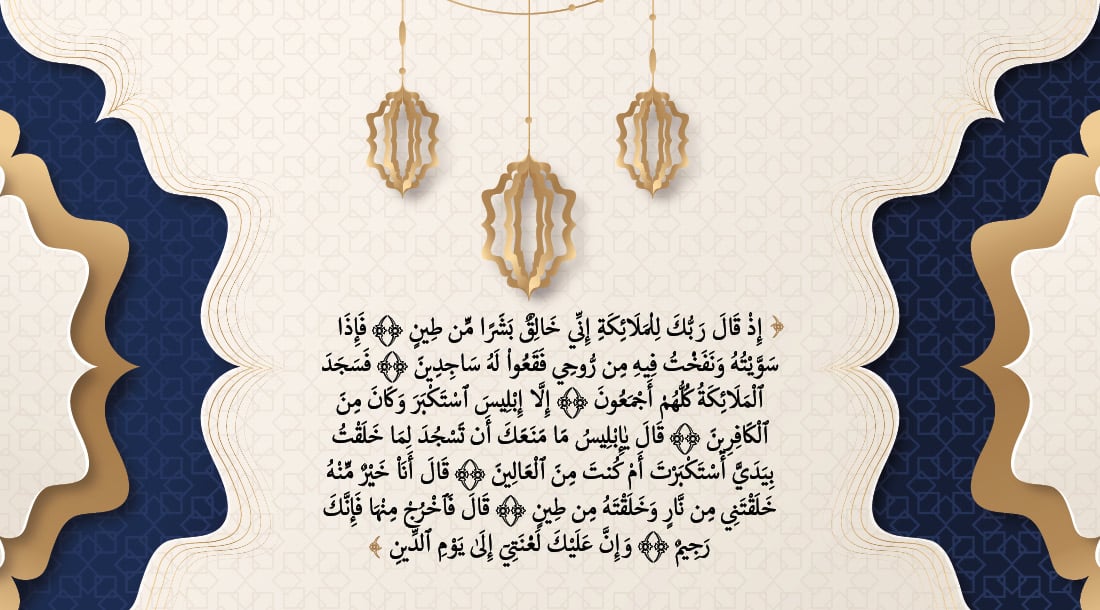 ﴿ إِذْ قَالَ رَبُّكَ لِلْمَلَائِكَةِ إِنِّي خَالِقٌ بَشَرًا مِّن طِينٍ ۝ فَإِذَا
سَوَّيْتُهُ وَنَفَخْتُ فِيهِ مِن رُّوحِي فَقَعُوا۟ لَهُ سَاجِدِينَ ۝ فَسَجَدَ
ٱلْمَلَائِكَةُ كُلُّهُمْ أَجْمَعُونَ ۝ إِلَّا إِبْلِيسَ ٱسْتَكْبَرَ وَكَانَ مِنَ
ٱلْكَافِرِينَ ۝ قَالَ يَٰإِبْلِيسُ مَا مَنَعَكَ أَن تَسْجُدَ لِمَا خَلَقْتُ
بِيَدَيَّ أَسْتَكْبَرْتَ أَمْ كُنتَ مِنَ ٱلْعَالِينَ ۝ قَالَ أَنَا۠ خَيْرٌ مِّنْهُ
خَلَقْتَنِي مِن نَّارٍ وَخَلَقْتَهُ مِن طِينٍ ۝ قَالَ فَٱخْرُجْ مِنْهَا فَإِنَّكَ
رَجِيمٌ ۝ وَإِنَّ عَلَيْكَ لَعْنَتِيٓ إِلَىٰ يَوْمِ ٱلدِّينِ ﴾